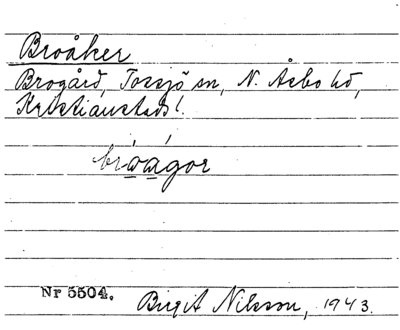 Broåker
Brogård, Tossjö sn, N. Åsbo hd,
Kristianstads l.
bròágor
Nr 5504.
Birgit Nilsson, 1943.